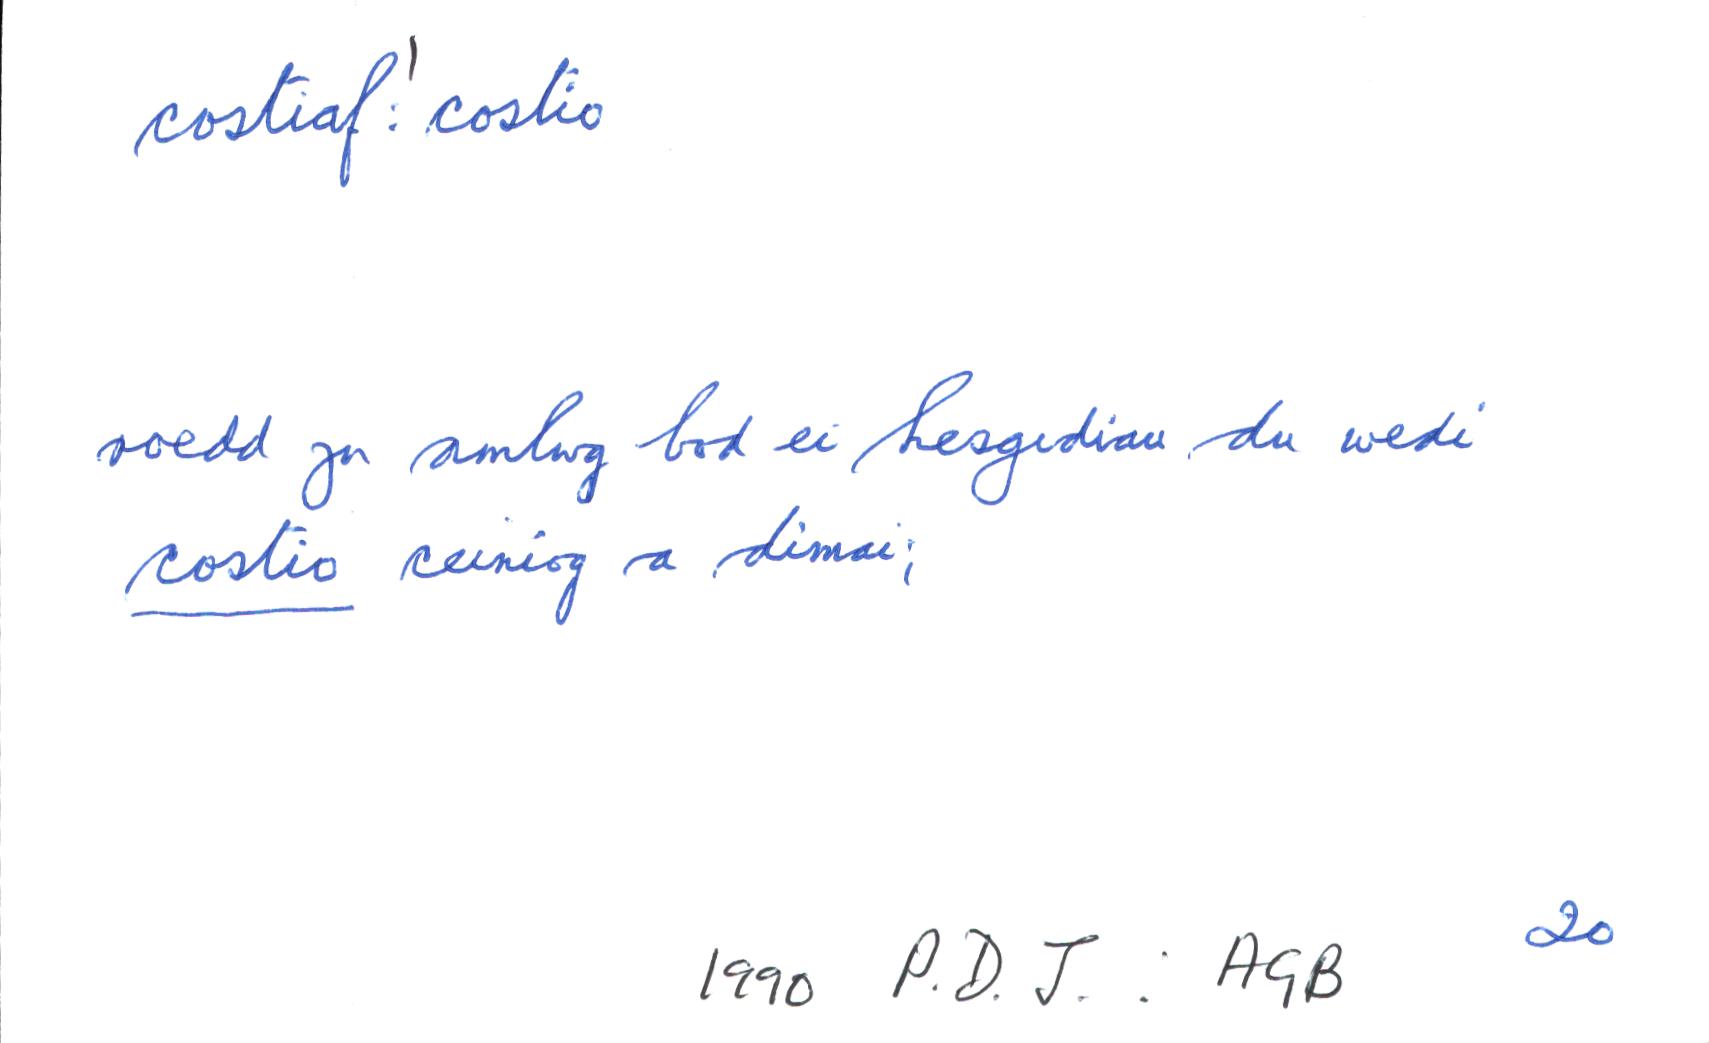 costiaf: costio
roedd yn amlwg bod ei hesgidiau du wedi
costio ceiniog a dimai;
20
1990 P.D.J. : AGB